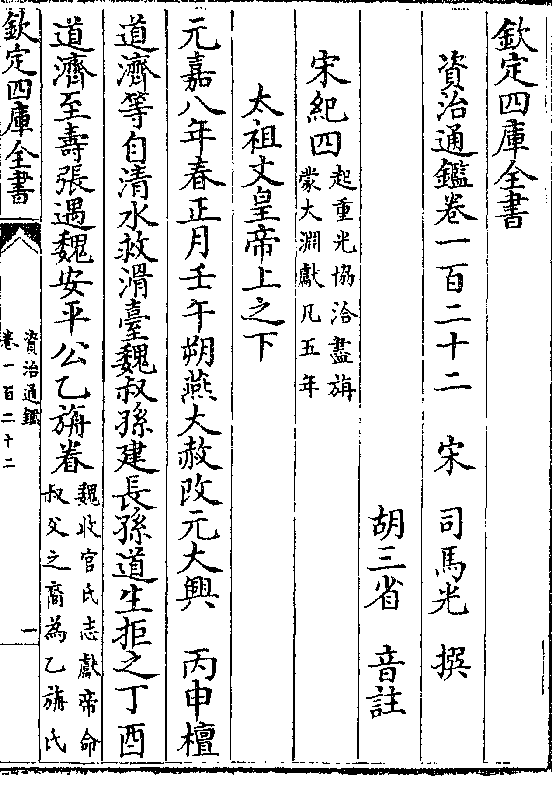 欽定四庫全書
資治通鑑卷一百二十二　宋　司馬光　撰
胡三省　音註
宋紀四起重光協洽盡旃
蒙大淵獻凡五年
太祖文皇帝上之下
元嘉八年春正月壬午朔燕大赦改元大興　丙申檀
道濟等自清水救滑臺魏叔孫建長孫道生拒之丁酉
道濟至壽張遇魏安平公乙旃眷魏收官氏志獻帝命
叔父之裔為乙旃氏
欽定四庫全書
資治通鑑
卷一百二十二
一